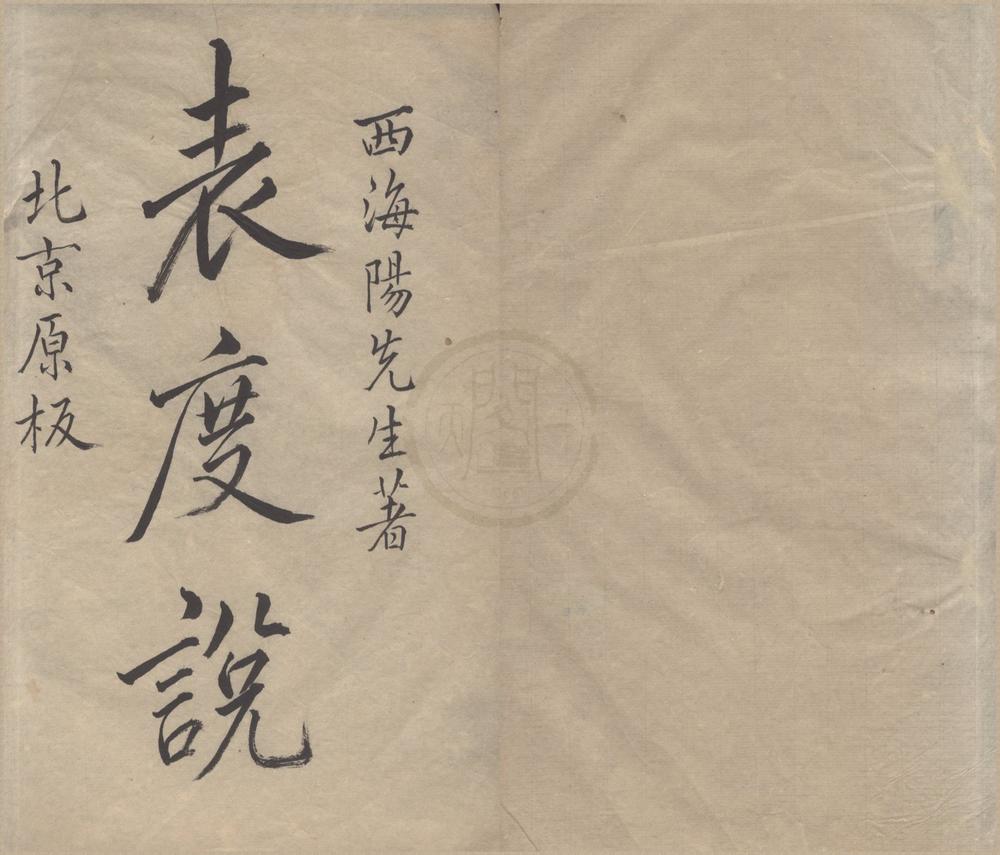 西海陽先生著
表度說
北京原板